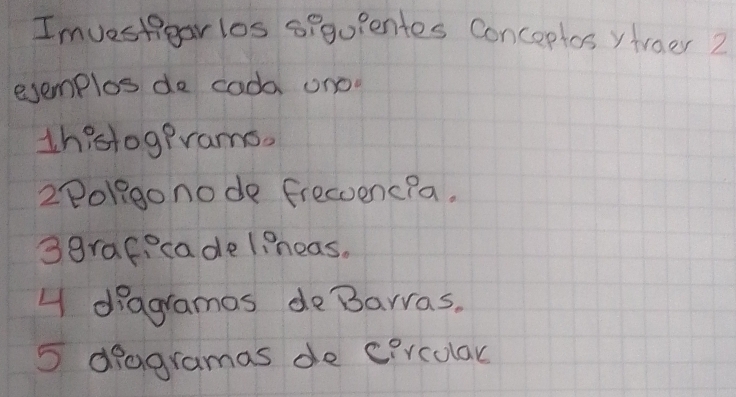 Imvestigar los siguientes Conceptos y traer 2
ejemplos de cada uno.
1 histogiramo.
2 Poligono de frecuencia.
3 grafica de lineas.
4 diagramas de Barras.
5 diagramas de circular